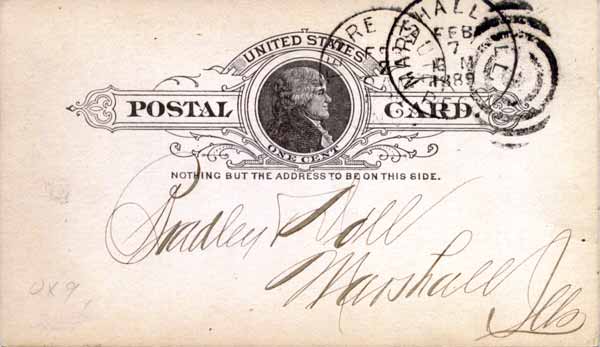 UNITED STATES
POSTAL CARD.
ONE CENT
NOTHING BUT THE ADDRESS TO BE ON THIS SIDE.
MARSHALL ILL.
FEB
7
M
1889
RE
Bradley Doll
Marshall Ills
UX9